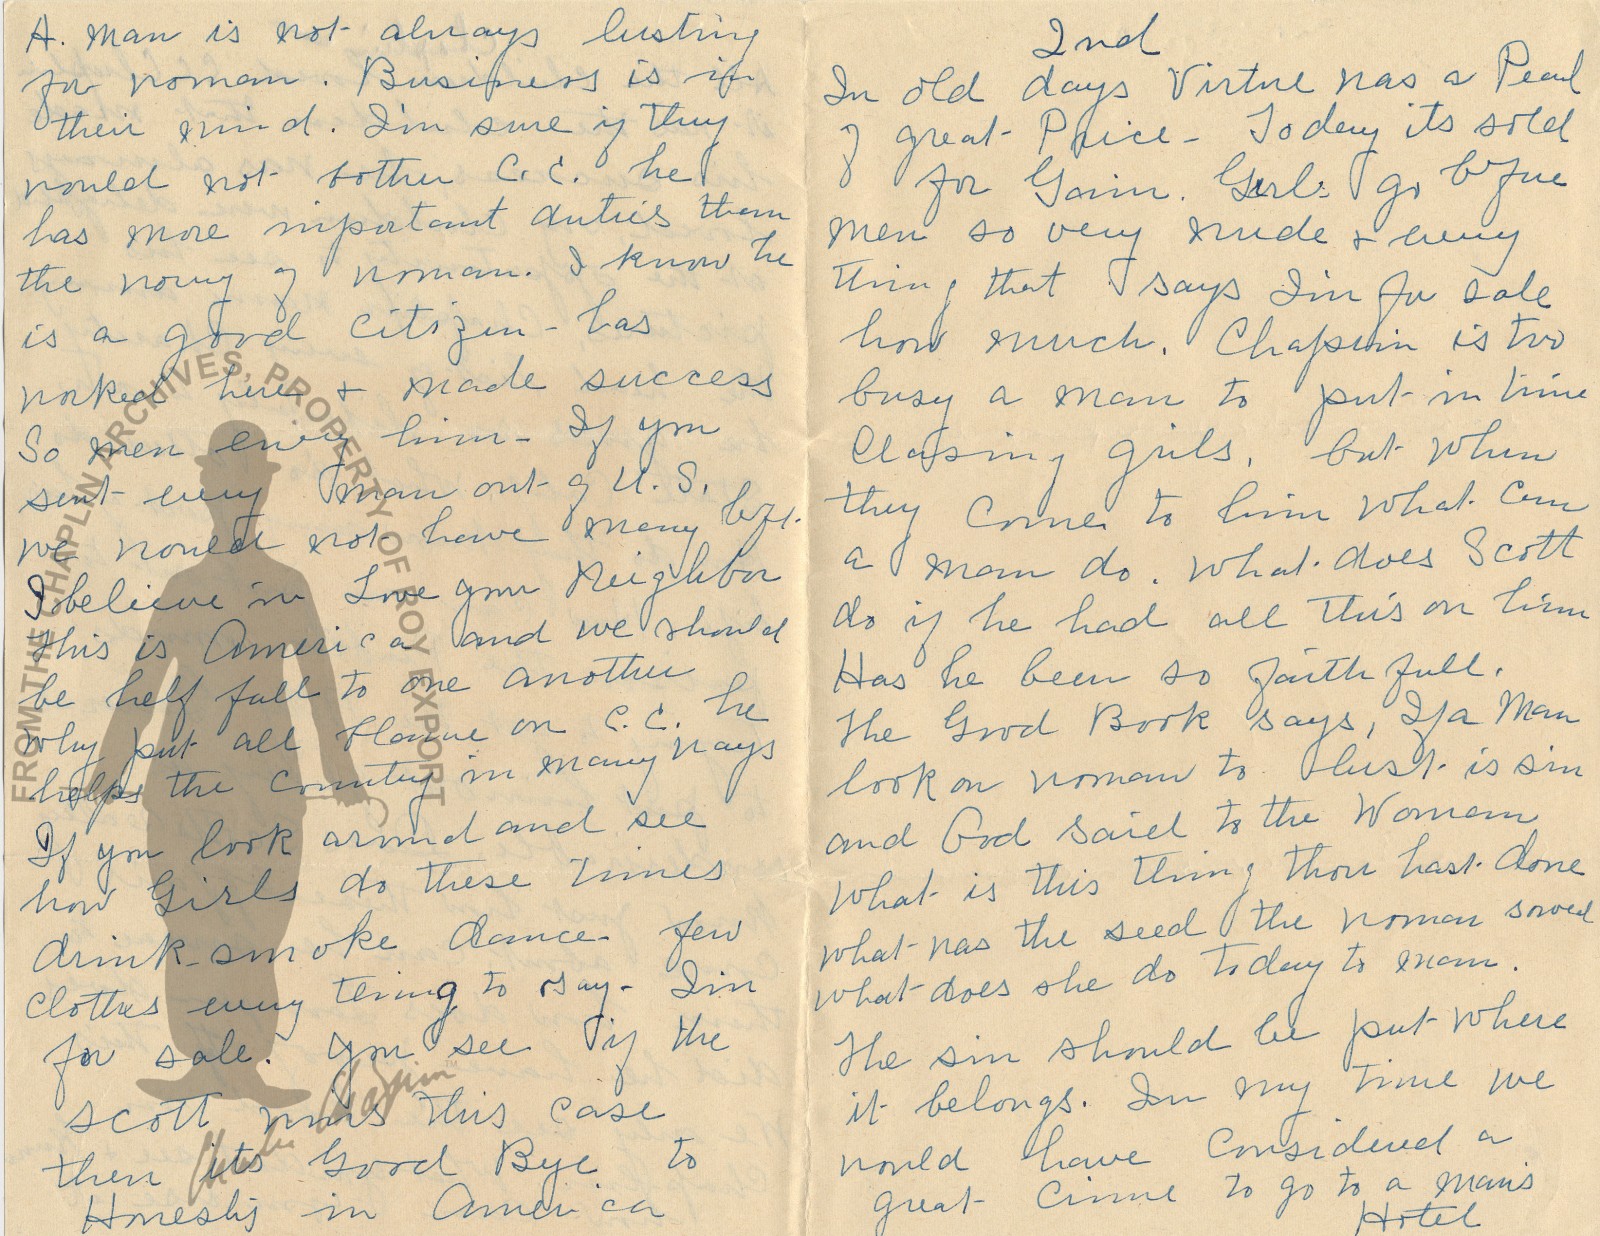 A. man is not always lusting
for woman. Business is in
their mind. I'm sure if they
would not bother C.C. he
has more important duties then
the woruy of woman. I know he
is a good citizen - has
worked here & made success
So men envy him - If you
sent every man out of U.S.
we would not have many left.
I believe in Love your Neighbor
this is America and we should
be helf full to one another
why put all blame on C.C. he
helps the country in many ways
If you look around and see
how Girls do these times
drink - smoke dance - few
clothes every thing to say - I'm
for sale. You see if the
Scott wins this case
then its Good Bye to
Honesty in America
2nd
In old days Virtue was a Pearl
of great Price - Today its sold
for Gain. Girls go before
men so very nude & every
thing that says I'm for sale
how much. Chaplin is two
busy a man to put in time
Chasing girls, but when
they come to him what can
a man do. What does Scott
do if he had all this on him
Has he been so faith full.
The Good Book says, If a Man
look on woman to lust is sin
and God said to the Woman
what is this thing thou hast done
what was the seed the woman sowed
what does she do today to man.
The sin should be put where
it belongs. In my time we
would have considered a
great crime to go to a man's
Hotel
FROM THE CHAPLIN ARCHIVES, PROPERTY OF ROY EXPORT
Charlie Chaplin